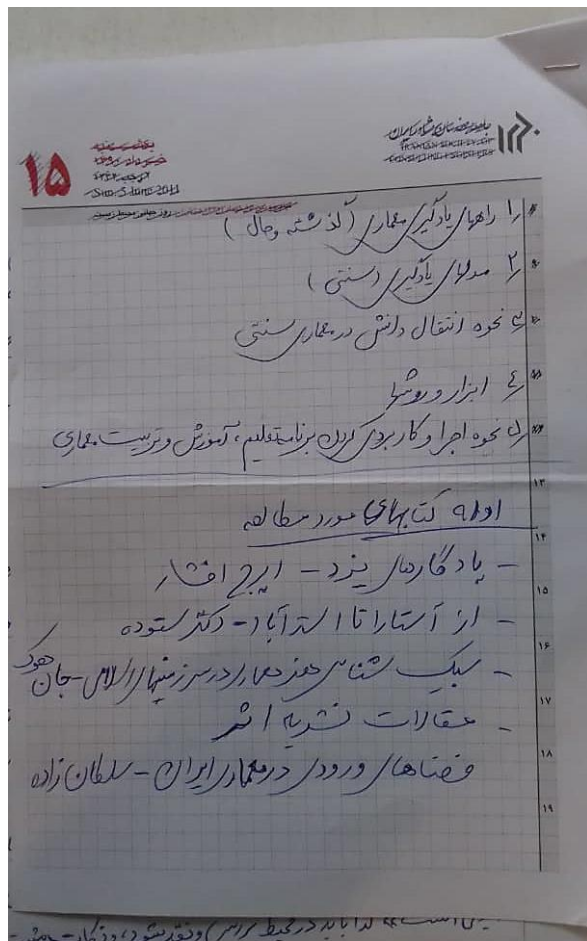 جامعه مهندسان مشاور ایران
۱۵
Sun. 5 June 2011
۱ راههای یادگیری معماری (گذشته وحال)
۲ مدلهای یادگیری (سنتی)
۳ نحوه انتقال دانش در معماری سنتی
۴ ابزار و روشها
۵ نحوه اجرا و کاربردی کردن برنامه تعلیم، آموزش و تربیت معماری
۱۳
ادامه کتابهای مورد مطالعه
۱۴
– یادگارهای یزد – ایرج افشار
۱۵
– از آستارا تا استرآباد – دکتر ستوده
۱۶
– سبک شناسی هنر معماری در سرزمینهای اسلامی – جان هوگ
۱۷
– مقالات نشریه اثر
۱۸
فضاهای ورودی در معماری ایران – سلطان زاده
۱۹